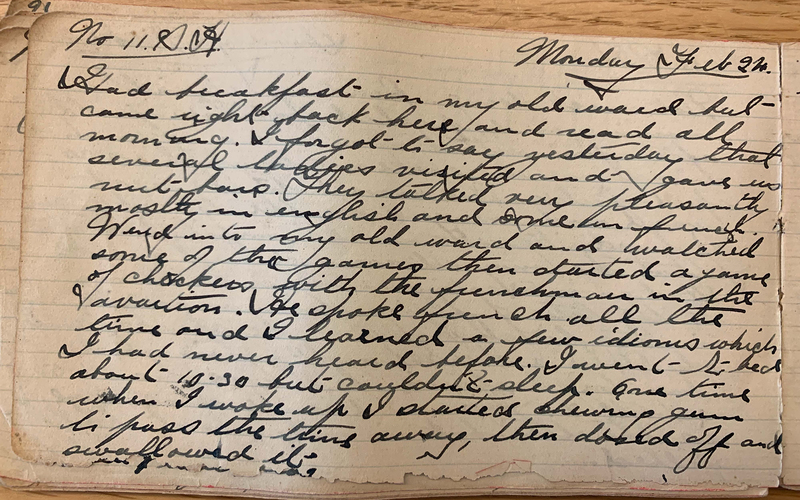 No 11. S.H.
Monday Feb 24.
Had breakfast in my old ward but
came right back here and read all
morning. I forgot to say yesterday that
several ladies visited and gave us
nut bars. They talked very pleasantly
mostly in english and some in french.
Went into my old ward and watched
some of the games then started a game
of checkers with the frenchman in the
. He spoke french all the
time and I learned a few idioms which
I had never heard before. I went to bed
about 10.30 but couldn't sleep. One time
when I woke up I started chewing gum
to pass the time away, then dozed off and
swallowed it.